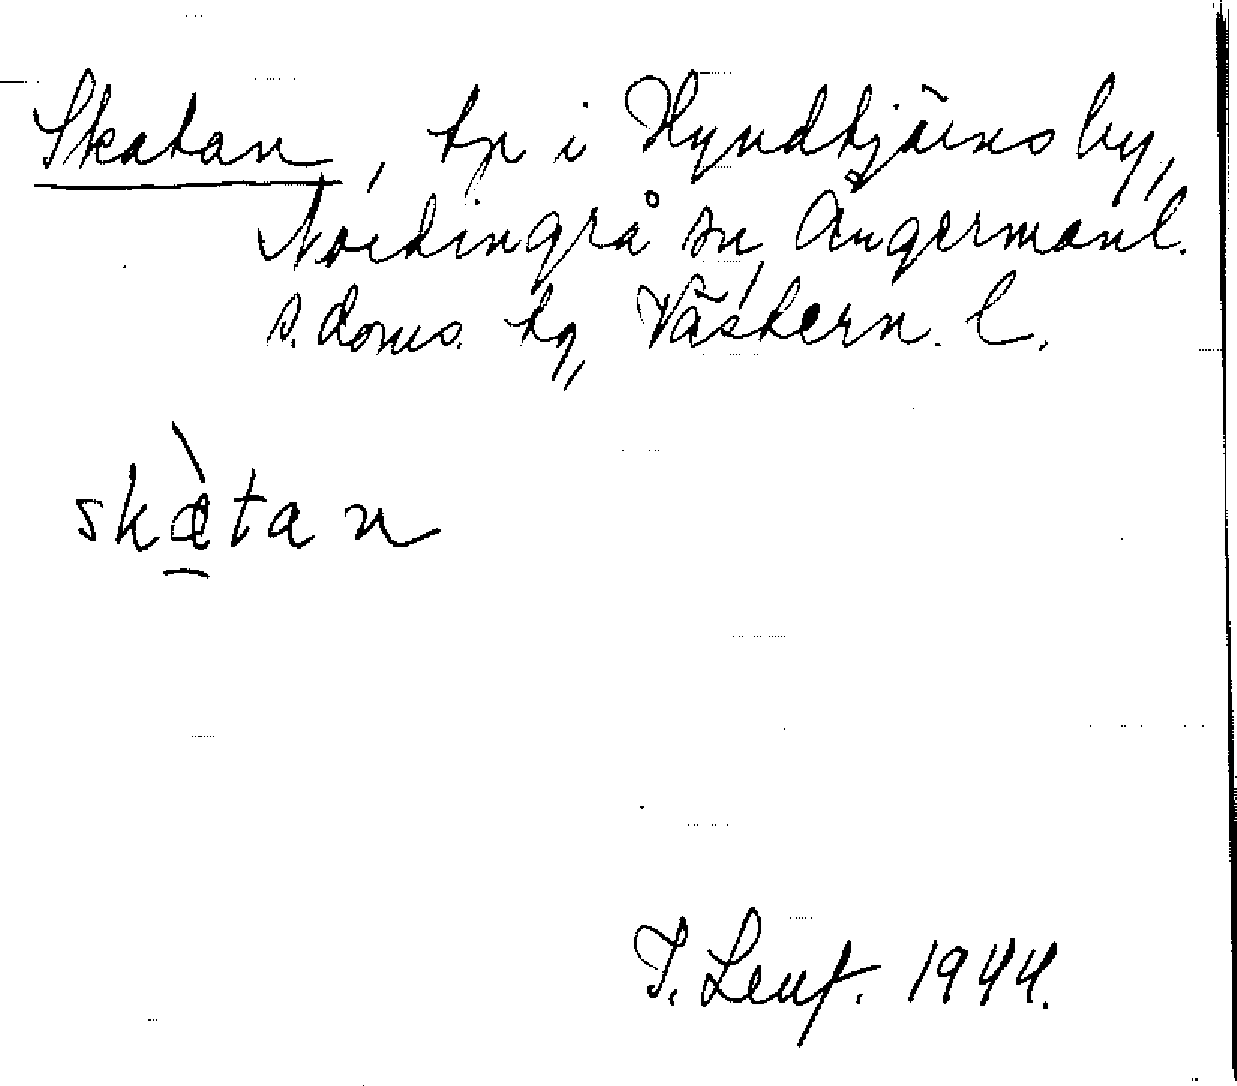 Skatan, tp i Hyndtjärns by,
Nordingrå sn, Ångermanl.
s. doms. tg, Västern. l.
skæ̀tan
1944.